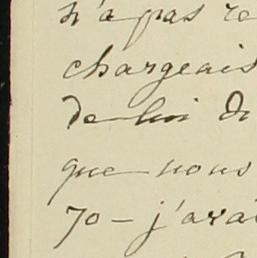 n'a pas re
chargeais
de lui di
que nous
70 - j'avai